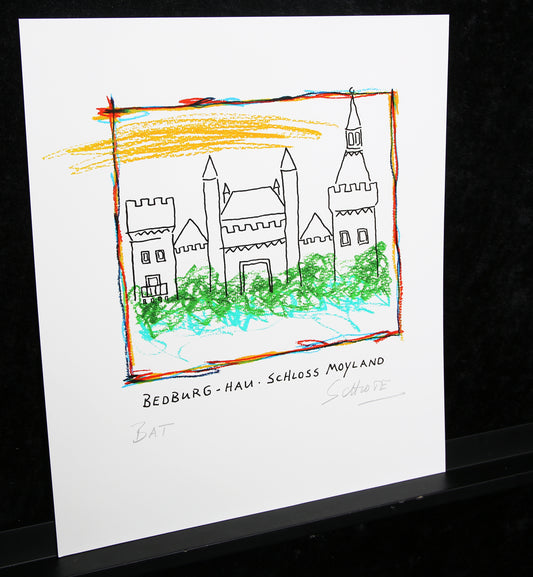 BEDBURG-HAU. SCHLOSS MOYLAND
BAT